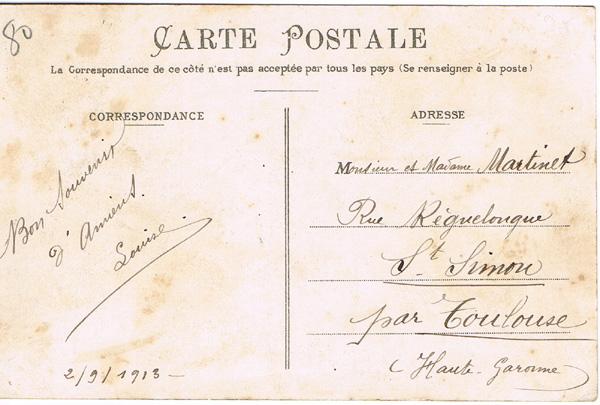 80
CARTE POSTALE
La Correspondance de ce côté n'est pas acceptée par tous les pays (Se renseigner à la poste)
CORRESPONDANCE
Bon Souvenir
d'Amiens.
Louise.
2/9/1913 –
ADRESSE
Monsieur et Madame Martinet
Rue Réguelongue
St Simon
par Toulouse
(Haute-Garonne)